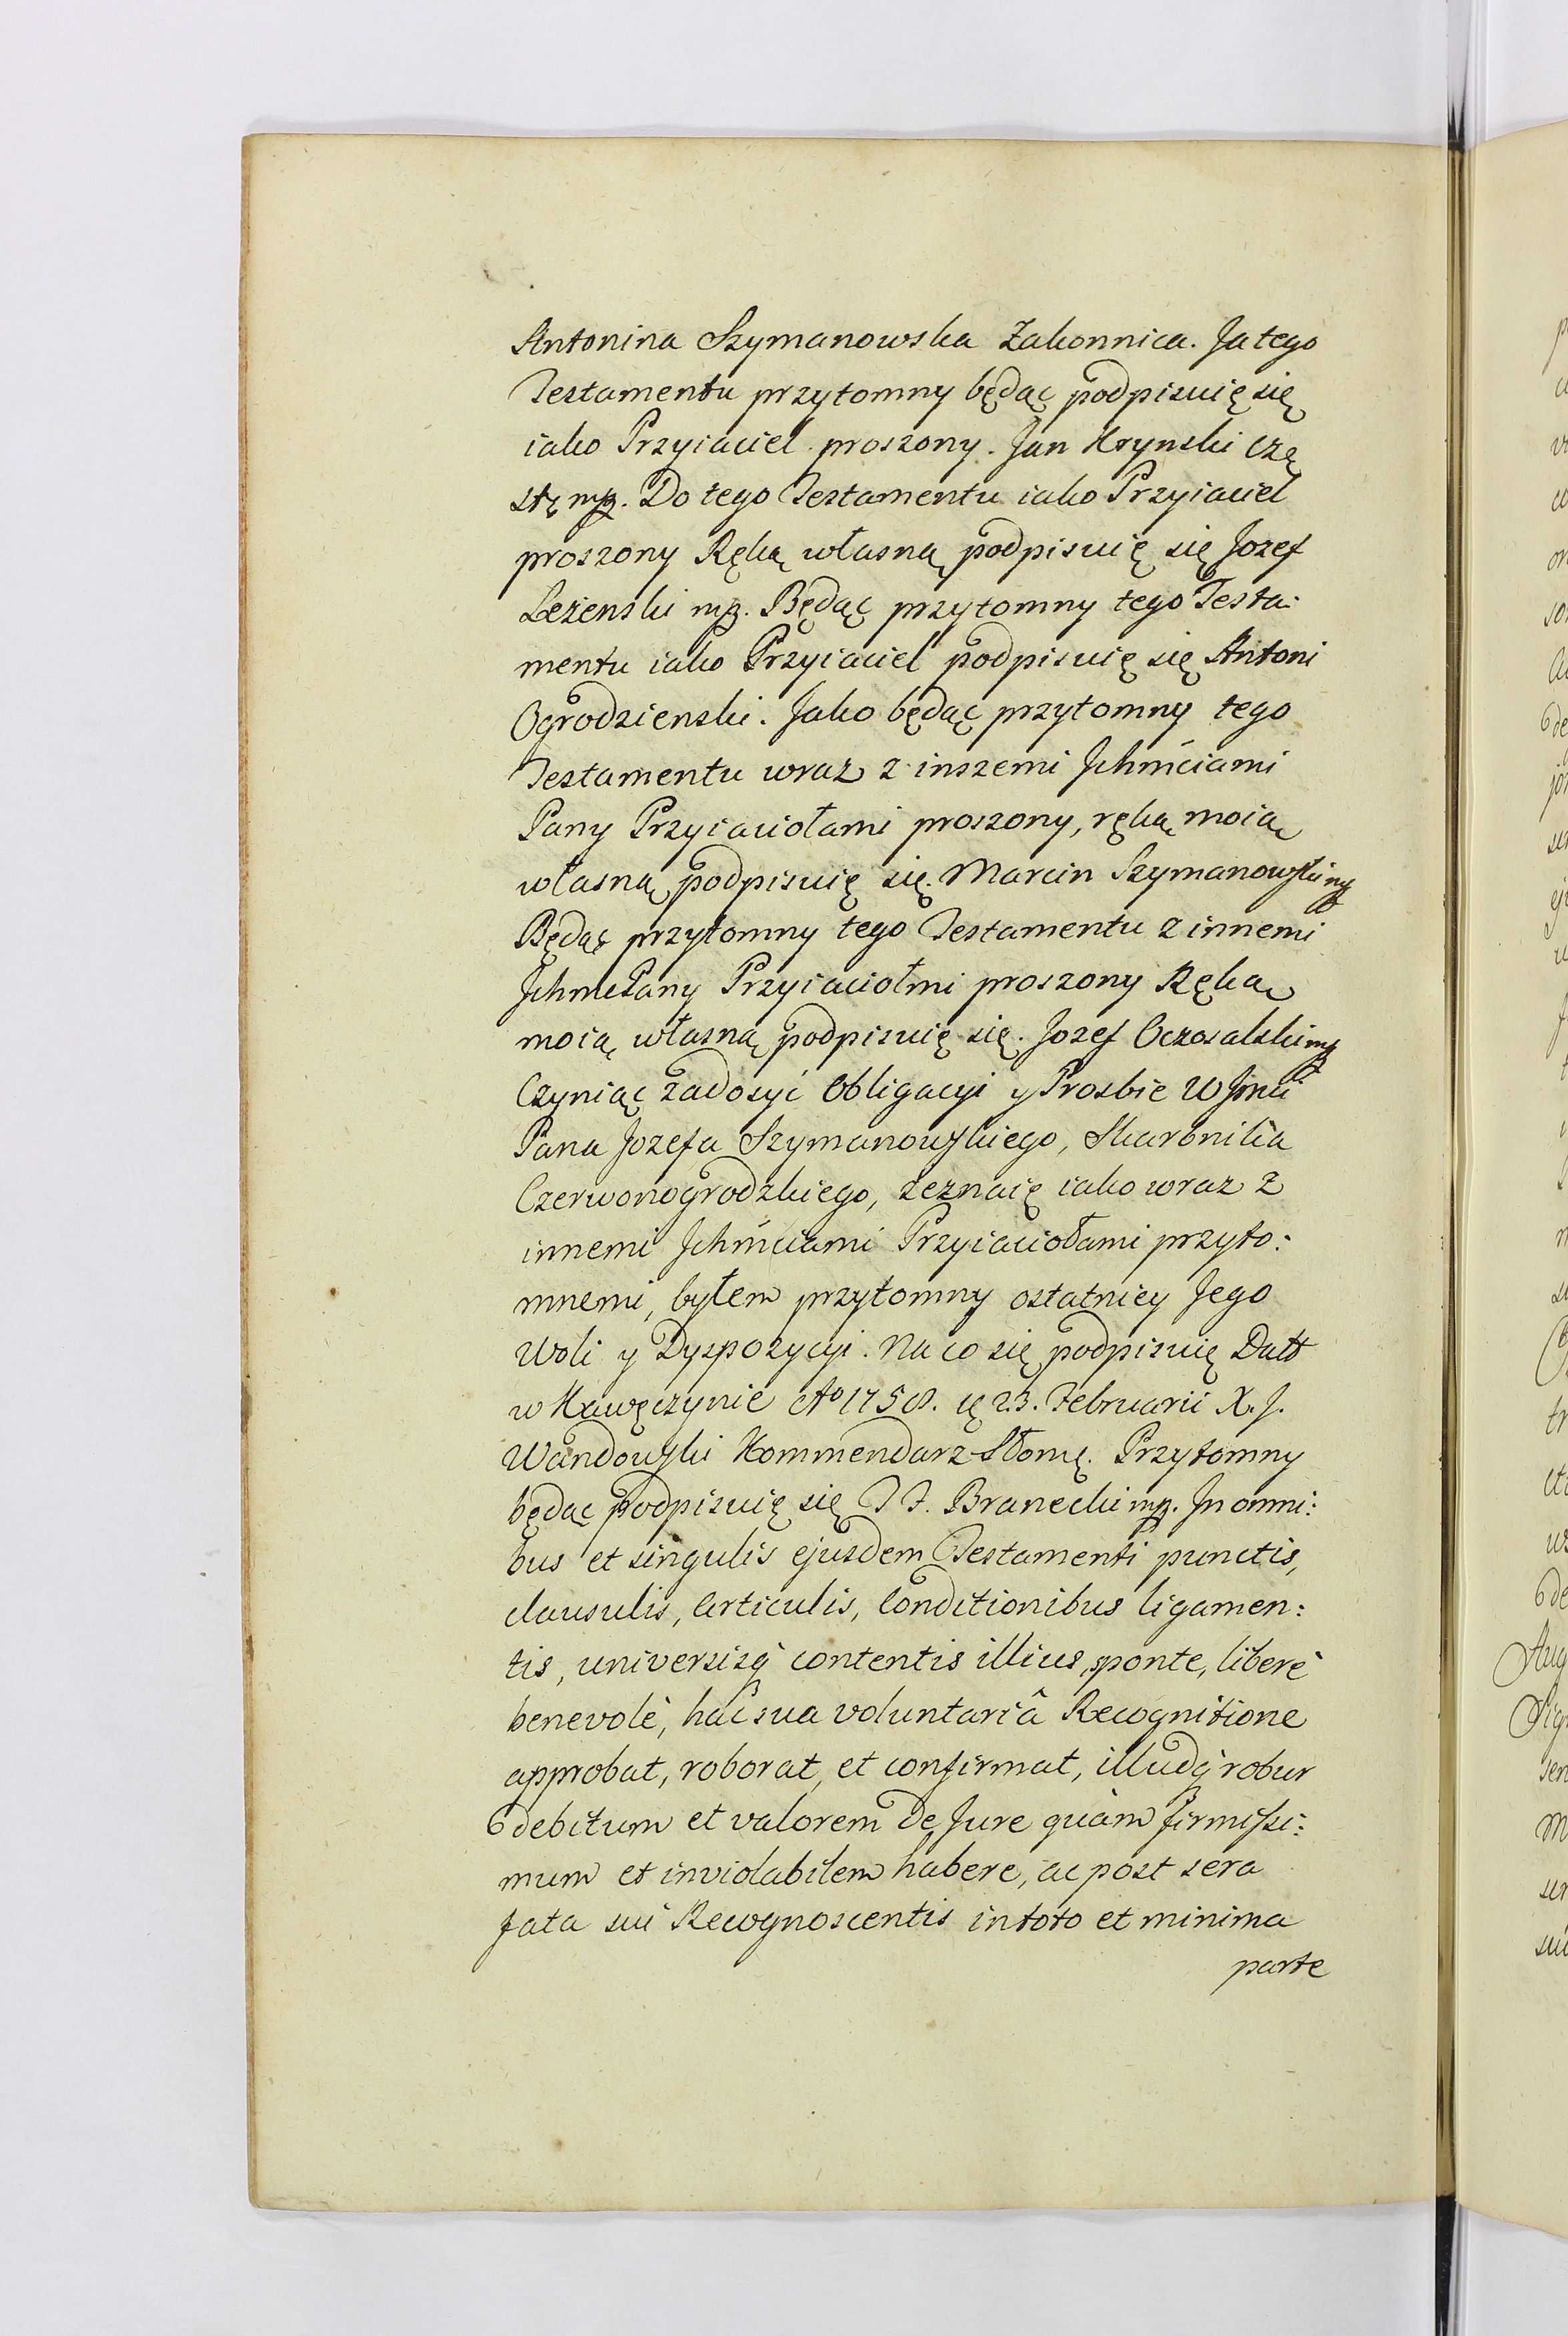 Antonina Szymanowska Zakonnica. Ja tego
Testamentu przytomny będąc podpisuię się
iako Przyiaciel proszony. Jan Krynski Czę
stę mp. Do tego Testamentu iako Przyiaciel
proszony Ręką własną podpisuię się Jozef
Leżenski mp. Będąc przytomny tego Testa:
mentu iako Przyiaciel podpisuię się Antoni
Ogrodzienski. Jako będąc przytomny tego
Testamentu wraz z inszemi Jchmciami
Pany Przyiaciołami proszony, ręką moią
własną podpisuię się. Marcin Szymanowski mp
Będąc przytomny tego Testamentu z innemi
JchmcPany Przyiaciołmi proszony Ręką
moią własną podpisuię się. Jozef Oczosalski mp
Czyniąc zadosyć Obligacyi y Prosbie WJmci
Pana Jozefa Szymanowskiego, Skarbnika
Czerwonogrodzkiego, zeznaię iako wraz z
innemi Jchmciami Przyiaciołami przyto:
mnemi, byłem przytomny ostatniey Jego
Woli y Dyspozycyi. Na co się podpisuię Datt
w Kawęczynie Ao 1758. 23. Februarii X. J.
Wandowski Kommendarz Słomę. Przytomny
będąc podpisuię się J J. Branecki mp. Jn omni:
bus et singulis ejusdem Testamenti punctis,
clausulis, articulis, Conditionibus ligamen:
tis, universisq̀ contentis illius, sponte, liberè
benevolè, hac sua voluntariâ Recognitione
approbat, roborat, et confirmat, illudq̀ robur
debitum et valorem de Jure quàm firmissi:
mum et inviolabilem habere, ac post sera
fata sui Recognoscentis in toto et minima
parte